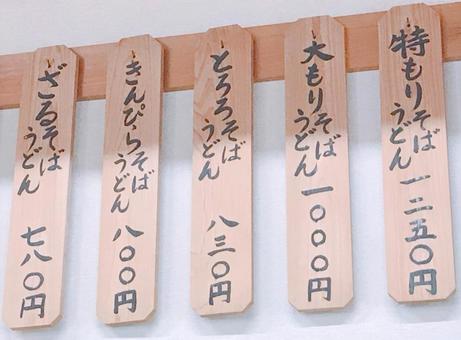 特もりそば
うどん 一二五〇円
大もりそば
うどん 一〇〇〇円
とろろそば
うどん 八三〇円
きんぴらそば
うどん 八〇〇円
ざるそば
うどん 七八〇円